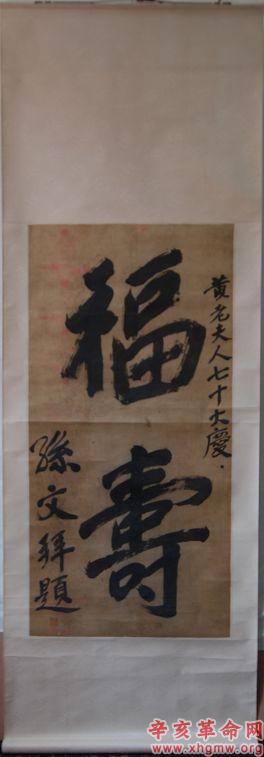 黄老夫人七十大慶
福壽
孫文拜題
辛亥革命网
www.xhgmw.org